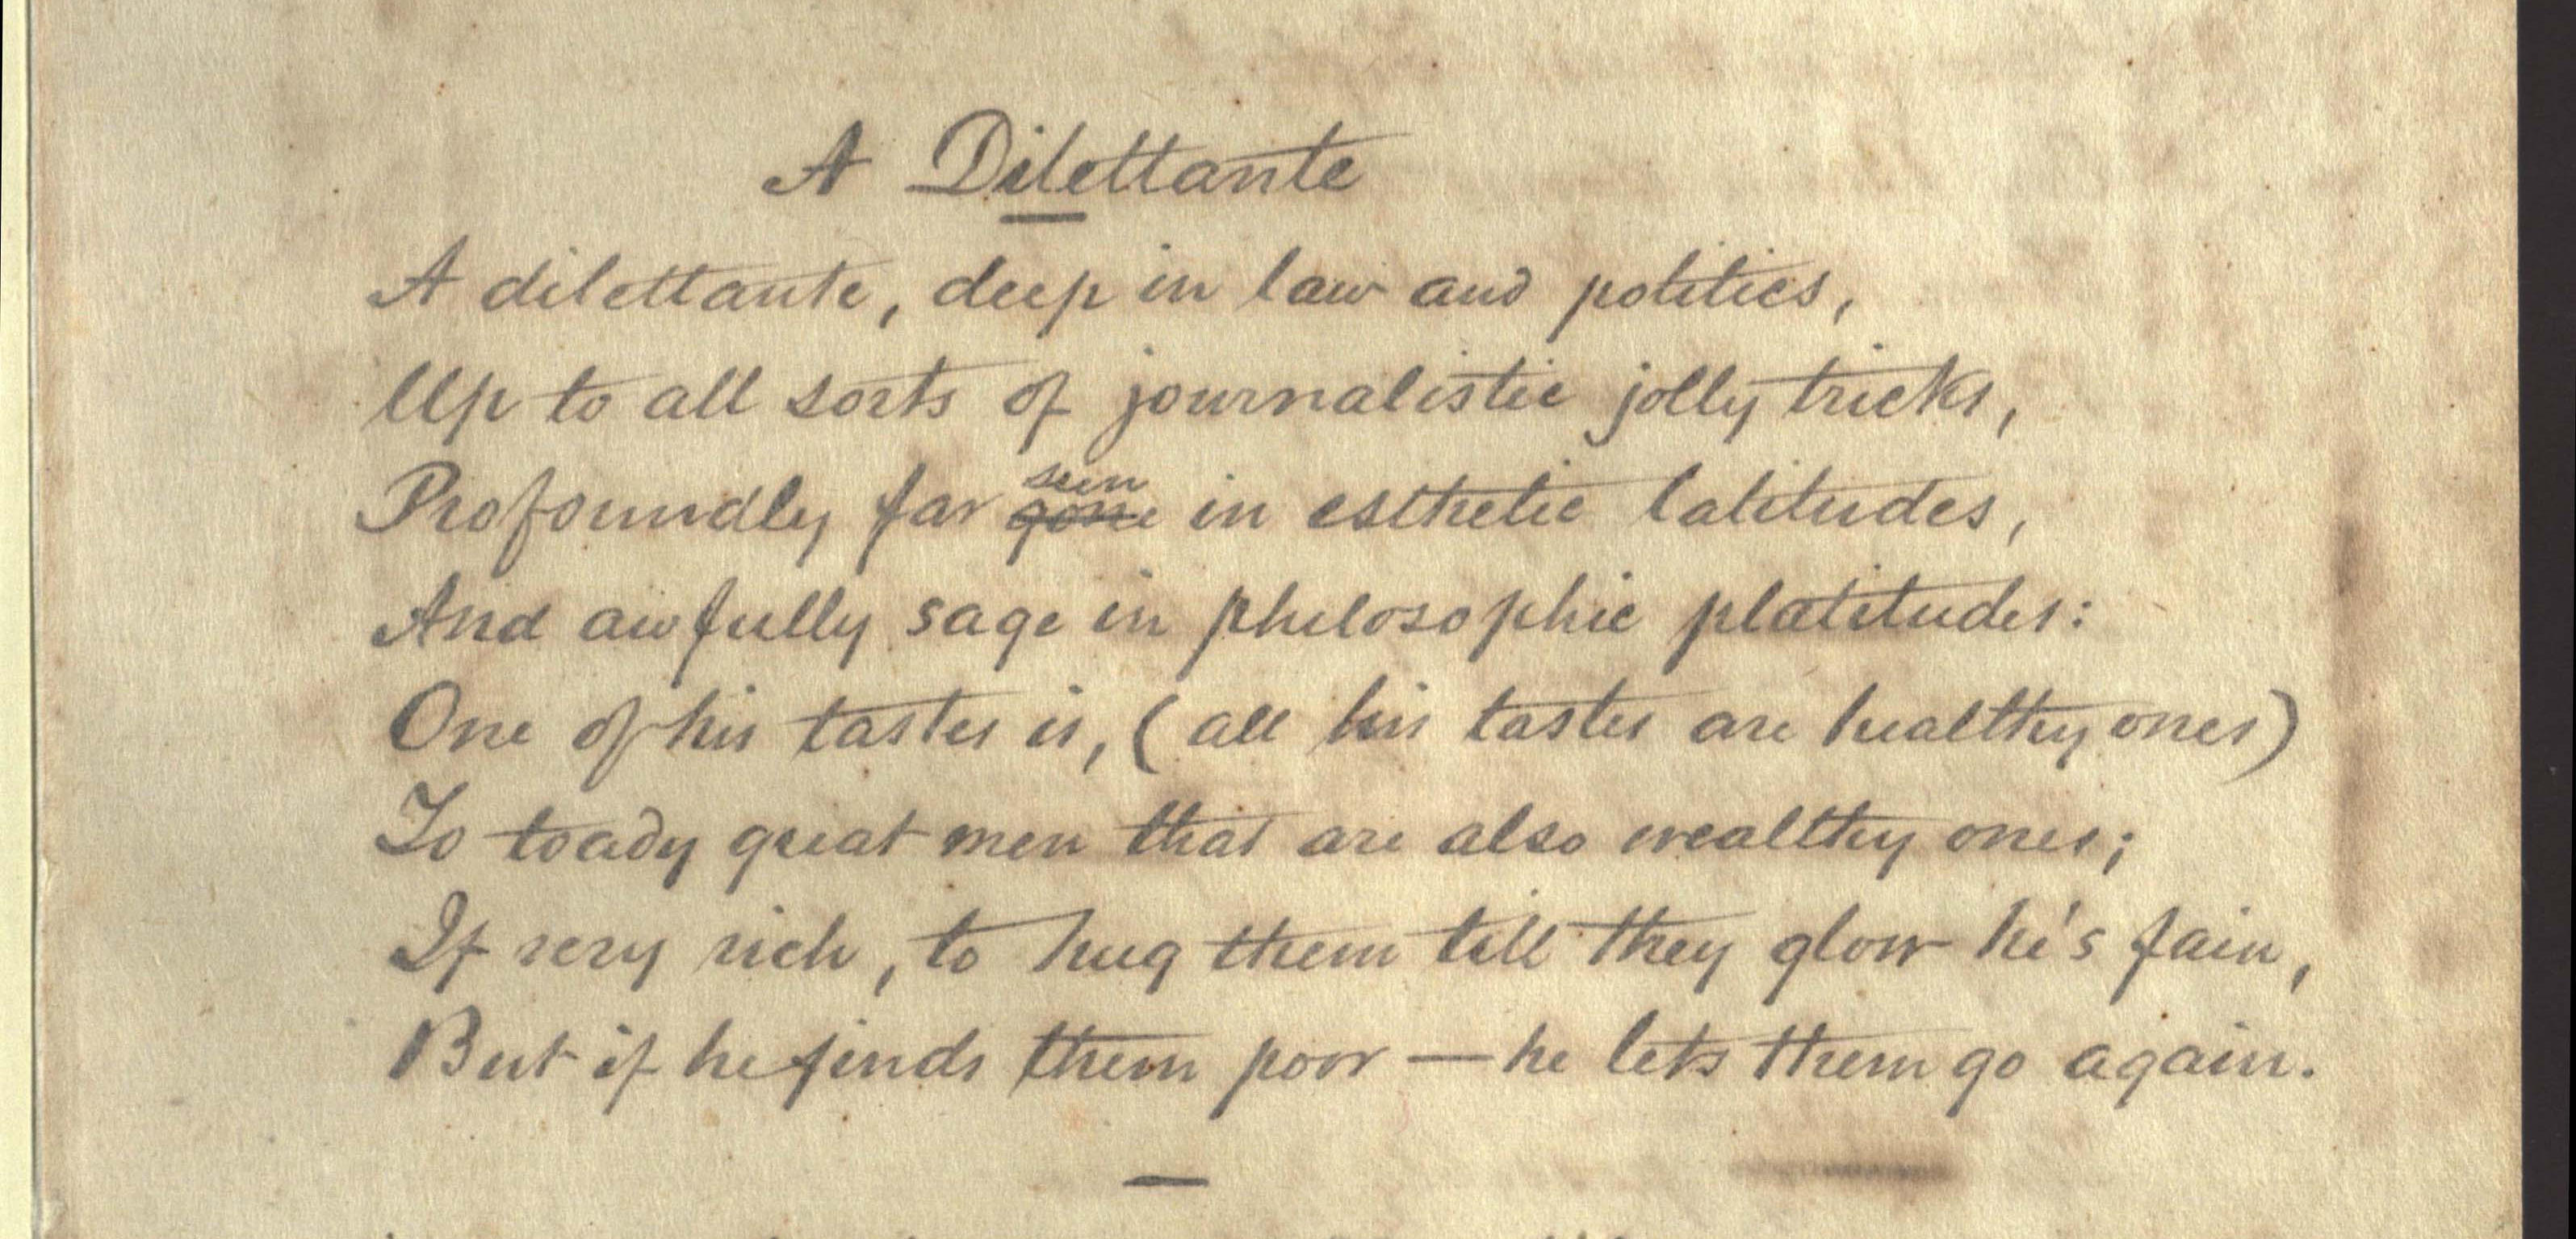 A Dilettante
A dilettante, deep in law and politics,
Up to all sorts of journalistic jolly tricks,
seen
Profoundly far gone in esthetic latitudes,
And awfully sage in philosophic platitudes:
One of his tastes is, (all his tastes are healthy ones)
To toady great men that are also wealthy ones;
If very rich, to hug them till they glow he's fain,
But if he finds them poor — he lets them go again.